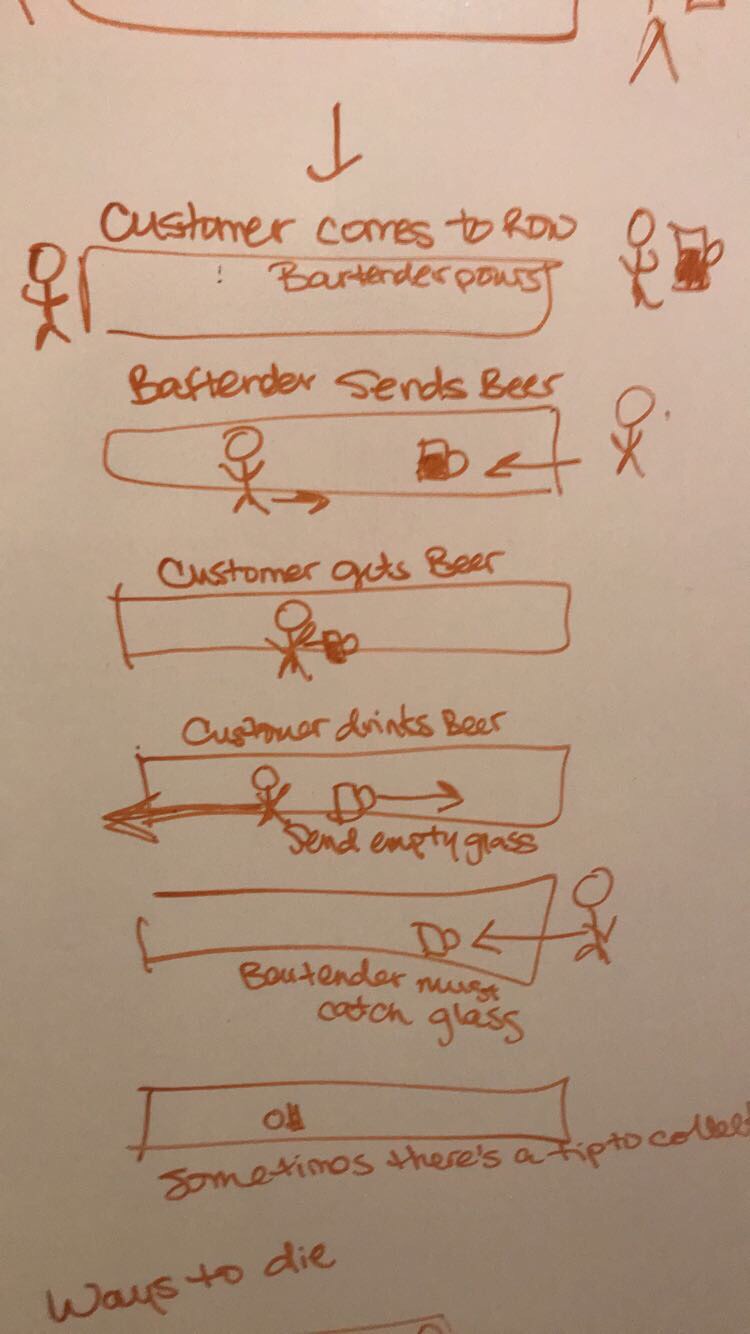 Customer comes to Row
Bartender pours
Bartender Sends Beer
Customer gets Beer
Customer drinks Beer
Send empty glass
Bartender must
catch glass
Sometimes there's a tip to collect
Ways to die